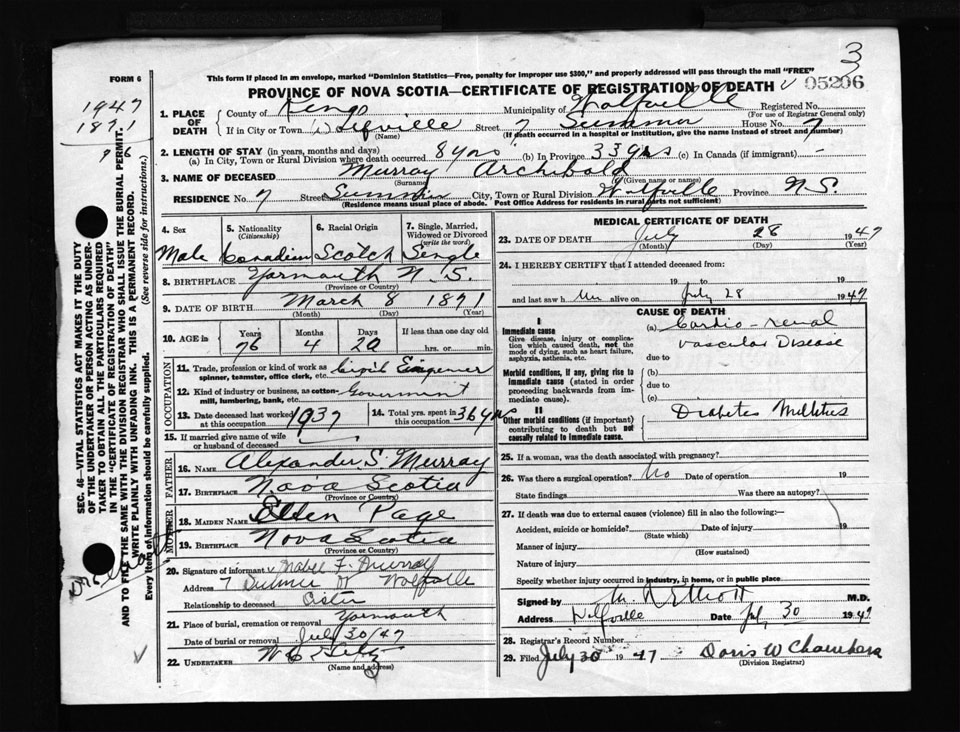 3
FORM 6
This form if placed in an envelope, marked "Dominion Statistics—Free, penalty for improper use $300," and properly addressed will pass through the mail "FREE"
PROVINCE OF NOVA SCOTIA—CERTIFICATE OF REGISTRATION OF DEATH 05206
1947
1871
76
1. PLACE OF DEATH
County of Kings Municipality of Wolfville Registered No.
(For use of Registrar General only)
If in City or Town Wolfville Street 7 Summer House No. 7
(Name) (If death occurred in a hospital or institution, give the name instead of street and number)
2. LENGTH OF STAY (in years, months and days)
(a) In City, Town or Rural Division where death occurred 8 yrs (b) In Province 33 yrs (c) In Canada (if immigrant) -
3. NAME OF DECEASED Murray Archibald
(Surname) (Given name or names)
RESIDENCE No. 7 Street Summer City, Town or Rural Division Wolfville Province N.S.
(Residence means usual place of abode. Post Office Address for residents in rural parts not sufficient)
4. Sex
Male
5. Nationality
(Citizenship)
Canadian
6. Racial Origin
Scotch
7. Single, Married, Widowed or Divorced
(write the word)
Single
8. BIRTHPLACE Yarmouth N.S.
(Province or Country)
9. DATE OF BIRTH March 8 1871
(Month) (Day) (Year)
10. AGE in Years Months Days If less than one day old
76 4 20 hrs. or min.
OCCUPATION
11. Trade, profession or kind of work as spinner, teamster, office clerk, etc. Civil Engineer
12. Kind of industry or business, as cotton-mill, lumbering, bank, etc. Government
13. Date deceased last worked at this occupation 1937
14. Total yrs. spent in this occupation 36 yrs
15. If married give name of wife or husband of deceased
FATHER
16. NAME Alexander S. Murray
17. BIRTHPLACE Nova Scotia
(Province or Country)
MOTHER
18. MAIDEN NAME Ellen Page
19. BIRTHPLACE Nova Scotia
(Province or Country)
20. Signature of informant Mabel F. Murray
Address 7 Summer St Wolfville
Relationship to deceased Sister
21. Place of burial, cremation or removal Yarmouth
Date of burial or removal July 30/47
22. UNDERTAKER
(Name and address)
MEDICAL CERTIFICATE OF DEATH
23. DATE OF DEATH July 28 1947
(Month) (Day) (Year)
24. I HEREBY CERTIFY that I attended deceased from:
19 to 19
and last saw h im alive on July 28 1947
CAUSE OF DEATH
I
Immediate cause
Give disease, injury or complication which caused death, not the mode of dying, such as heart failure, asphyxia, asthenia, etc.
(a) Cardio-renal
vascular Disease
due to
Morbid conditions, if any, giving rise to immediate cause (stated in order proceeding backwards from immediate cause).
(b)
due to
(c)
II
Other morbid conditions (if important) contributing to death but not causally related to immediate cause.
Diabetes Mellitus
25. If a woman, was the death associated with pregnancy?
26. Was there a surgical operation? No Date of operation 19
State findings Was there an autopsy?
27. If death was due to external causes (violence) fill in also the following:—
Accident, suicide or homicide? Date of injury 19
(State which)
Manner of injury
(How sustained)
Nature of injury
Specify whether injury occurred in industry, in home, or in public place.
Signed by M.D.
Address Wolfville Date July 30 1947
28. Registrar's Record Number
29. Filed July 30 1947 Doris W Chambers
(Division Registrar)
SEC. 46—VITAL STATISTICS ACT MAKES IT THE DUTY
OF THE UNDERTAKER OR PERSON ACTING AS UNDER-
TAKER TO OBTAIN ALL THE PARTICULARS REQUIRED
IN THE "CERTIFICATE OF REGISTRATION OF DEATH"
AND TO FILE THE SAME WITH THE DIVISION REGISTRAR WHO SHALL ISSUE THE BURIAL PERMIT.
WRITE PLAINLY WITH UNFADING INK. THIS IS A PERMANENT RECORD.
Every item of information should be carefully supplied. (See reverse side for instructions.)